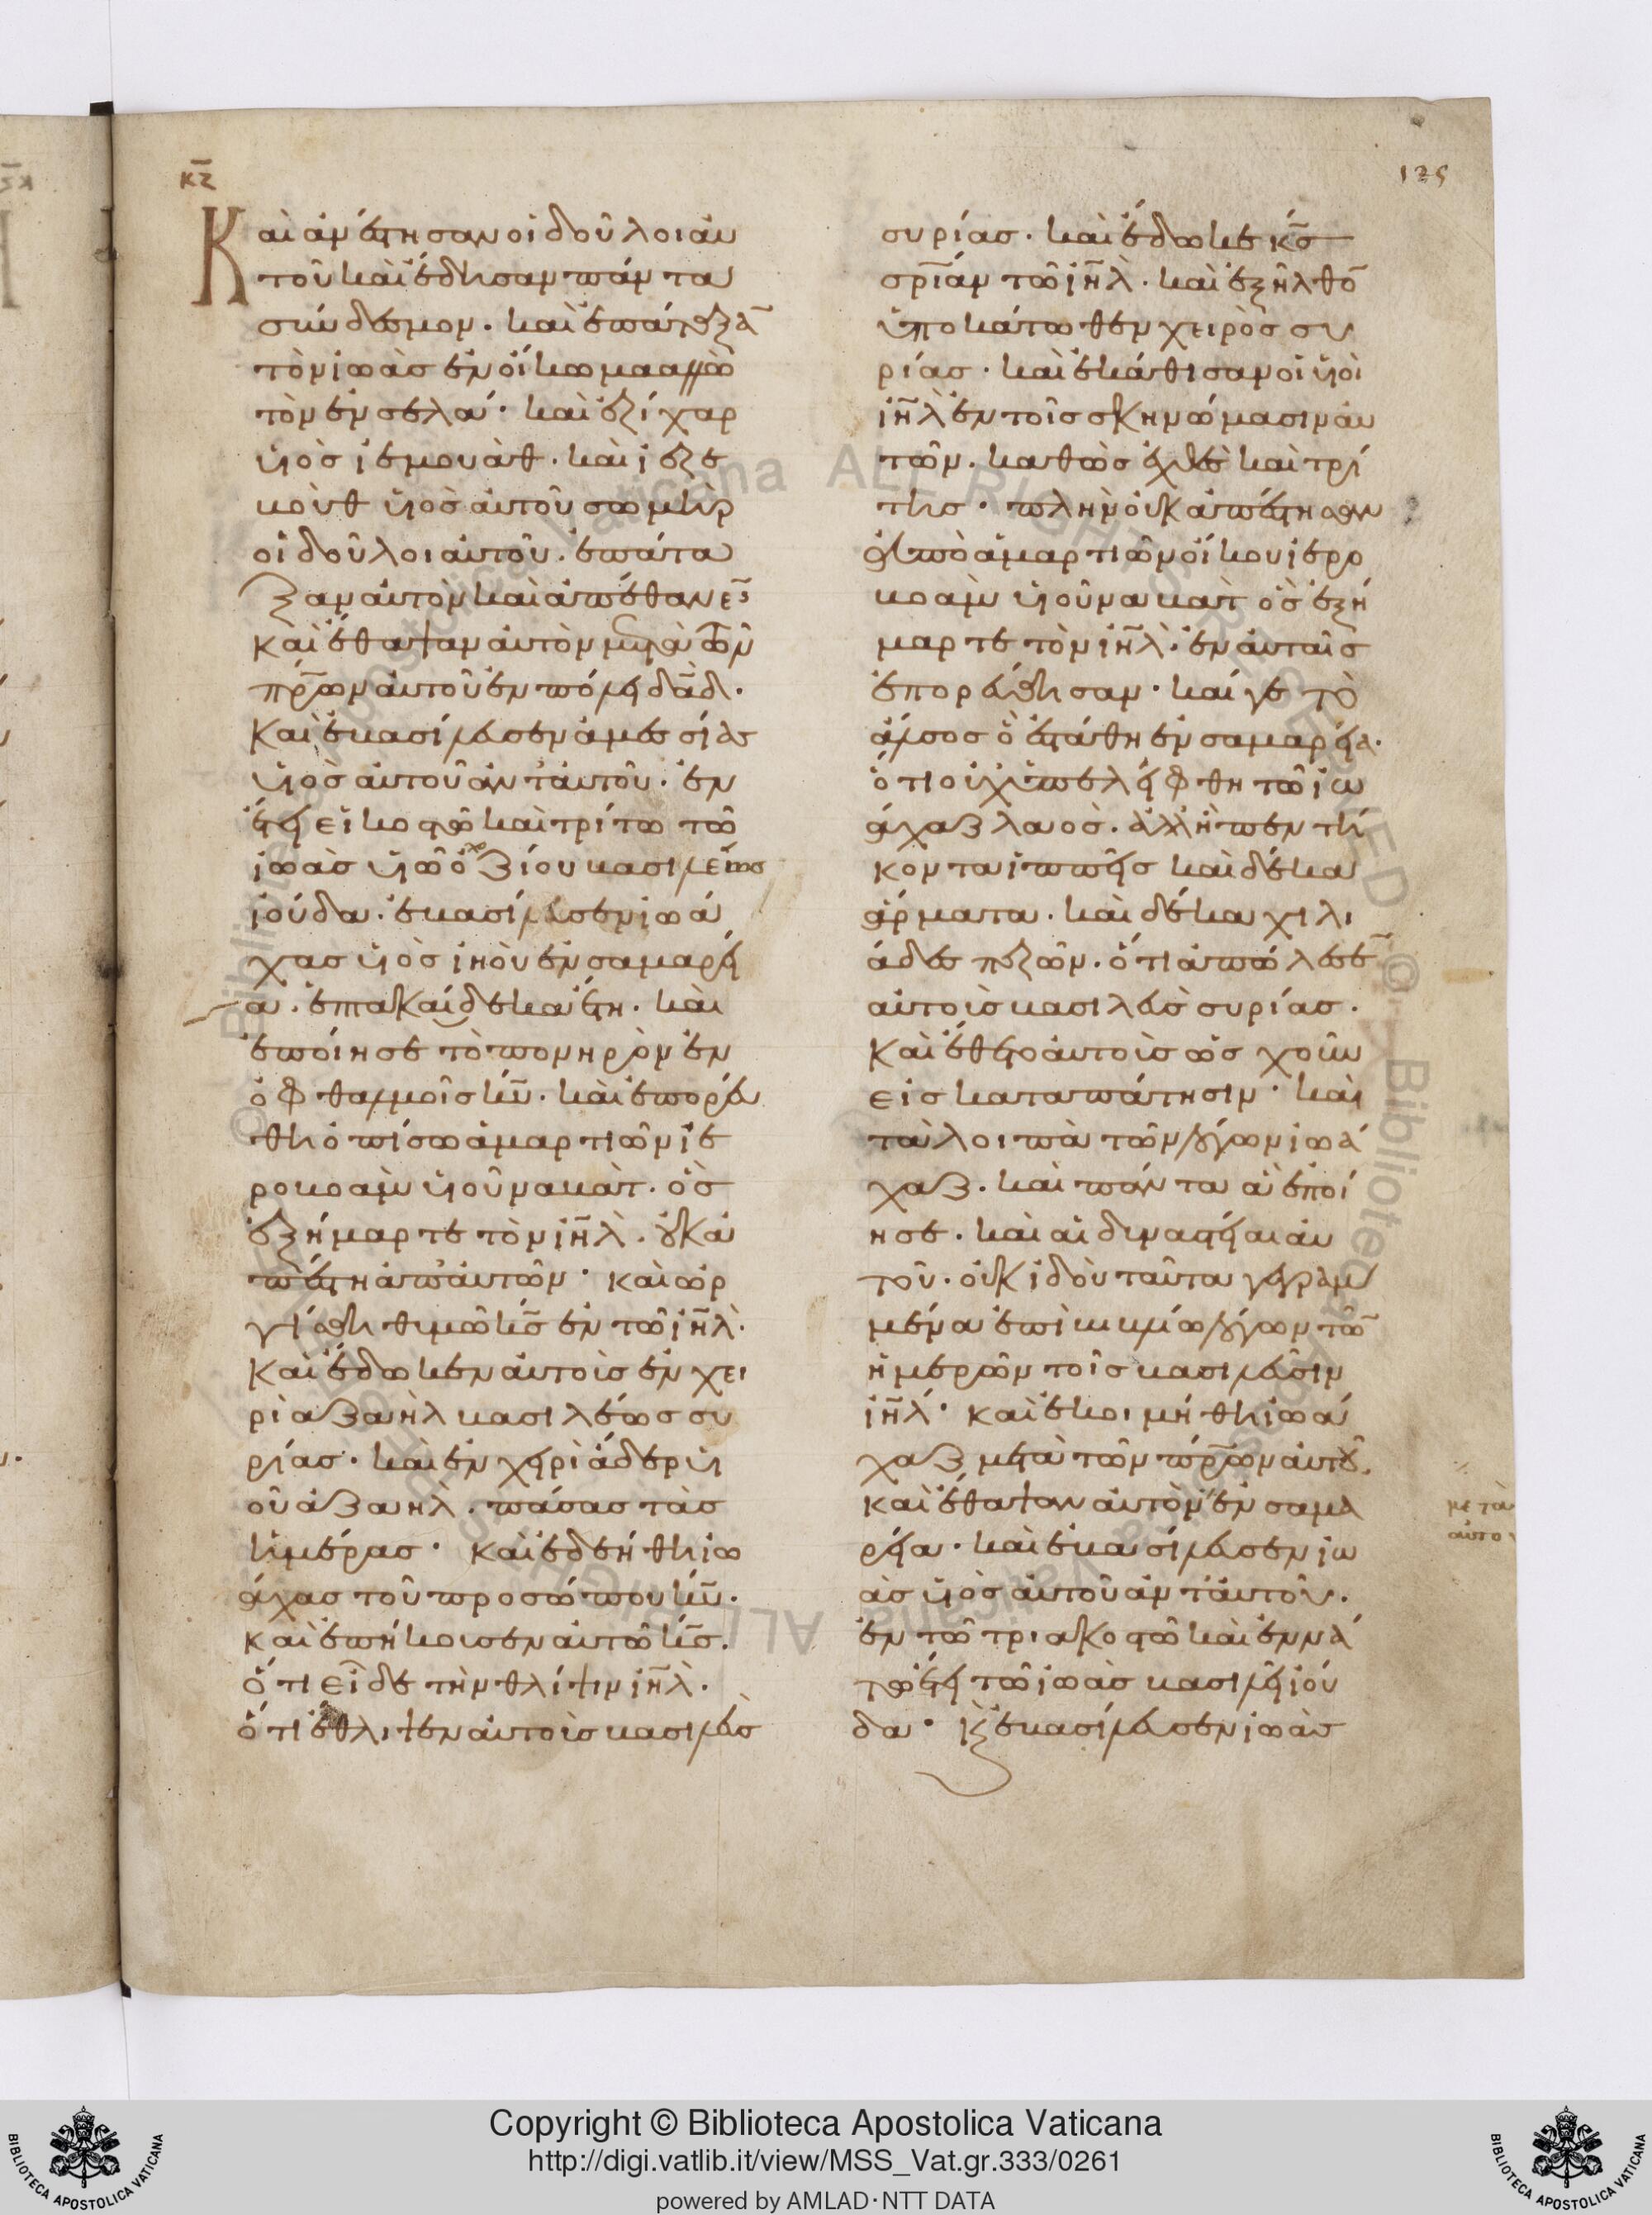 κζ
125
Καὶ ἀνέστησαν οἱ δοῦλοι αὐ
τοῦ καὶ ἔδησαν πάντα
σύνδεσμον. καὶ ἐπάταξα̅
τὸν ἰωὰς ἐν οἴκω μααλλὼ
τὸν ἐν σελά· καὶ ἐζίχαρ
υἱὸς ἰεμουάθ. καὶ ἰεζε
βοὺθ υἱὸς αὐτοῦ σωμὴρ
οἱ δοῦλοι αὐτοῦ. ἐπάτα
ξαν αὐτὸν καὶ ἀπέθανε·
καὶ ἔθαψαν αὐτὸν μετὰ τῶν
πρ̅ων αὐτοῦ ἐν πόλει δα̅δ.
Καὶ ἐβασίλευσεν ἀμεσίας
υἱὸς αὐτοῦ ἀντ' αὐτοῦ. ἐν
ἔτει εἰκοστῶ καὶ τρίτω τῶ
ἰωὰς υἱῶ ὀχοζίου βασιλέως
ἰούδα. ἐβασίλευσεν ἰωά
χας υἱὸς ἰηοὺ ἐν σαμαρεί
α. ἑπτακαίδεκα ἔτη. καὶ
ἐποίησε τὸ πονηρὸν ἐν
ὀφθαλμοῖς κ̅υ. καὶ ἐπορεύ
θη ὀπίσω ἁμαρτιῶν ἱε
ροβοὰμ υἱοῦ ναβάτ. ὃς
ἐξήμαρτε τὸν ἰη̅λ. οὐκ ἀ
πέστη ἀπ' αὐτῶν· καὶ ὠρ
γίσθη θυμῶ κ̅ς ἐν τῶ ἰη̅λ.
Καὶ ἔδωκεν αὐτοὺς ἐν χει
ρὶ ἀζαὴλ βασιλέως συ
ρίας. καὶ ἐν χειρὶ ἄδερ υἱ
οῦ ἀζαήλ. πάσας τὰς
ἡμέρας· καὶ ἐδεήθη ἰω
άχας τοῦ προσώπου κ̅υ.
καὶ ἐπήκουσεν αὐτῶ κ̅ς.
ὅτι εἶδε τὴν θλίψιν ἰη̅λ.
ὅτι ἔθλιψεν αὐτοὺς βασιλεὺς
συρίας. καὶ ἔδωκε κ̅ς
σρ̅ίαν τῶ ἰη̅λ. καὶ ἐξῆλθο̅
ὑποκάτωθεν χειρὸς συ
ρίας. καὶ ἐκάθισαν οἱ υἱοὶ
ἰη̅λ ἐν τοῖς σκηνώμασιν αὐ
τῶν. καθὼς ἐχθὲς καὶ τρί
της. πλὴν οὐκ ἀπέστησαν
ἀπὸ ἁμαρτιῶν οἴκου ἱερο
βοὰμ υἱοῦ ναβὰτ ὃς ἐξή
μαρτε τὸν ἰη̅λ. ἐν αὐταῖς
ἐπορεύθησαν. καί γε τὸ
ἄλσος ὃ ἐστάθη ἐν σαμαρεία.
ὅτι οὐχ ὑπελείφθη τῶ ἰω
άχαζ λαός. ἀλλ' ἢ πεντή
κοντα ἱππεῖς καὶ δέκα
ἅρματα. καὶ δέκα χιλι
άδες πεζῶν. ὅτι ἀπώλεσε̅
αὐτοὺς βασιλεὺς συρίας.
Καὶ ἔθετο αὐτοὺς ὡς χοῦν
εἰς καταπάτησιν· καὶ
τὰ λοιπὰ τῶν λόγων ἰωά
χαζ. καὶ πάντα ἃ ἐποί
ησε. καὶ αἱ δυναστεῖαι αὐ
τοῦ. οὐκ ἰδοὺ ταῦτα γεγραμ
μένα ἐπὶ βιβλίω λόγων τῶ̅
ἡμερῶν τοῖς βασιλεῦσιν
ἰη̅λ· καὶ ἐκοιμήθη ἰωά
χαζ μετὰ τῶν πρ̅ων αὐτοῦ.
καὶ ἔθαψαν αὐτὸν ἐν σαμα
ρεία. καὶ ἐβασίλευσεν ἰω
ὰς υἱὸς αὐτοῦ ἀντ' αὐτοῦ.
ἐν τῶ τριακοστῶ καὶ ἐννά
τω ἔτει τῶ ἰωὰς βασιλεῖ ἰού
δα· Κ̀ ἐβασίλευσεν ἰωὰς
με τὰυ
αὐτο
Copyright © Biblioteca Apostolica Vaticana
http://digi.vatlib.it/view/MSS_Vat.gr.333/0261
powered by AMLAD·NTT DATA
BIBLIOTECA APOSTOLICA VATICANA
BIBLIOTECA APOSTOLICA VATICANA